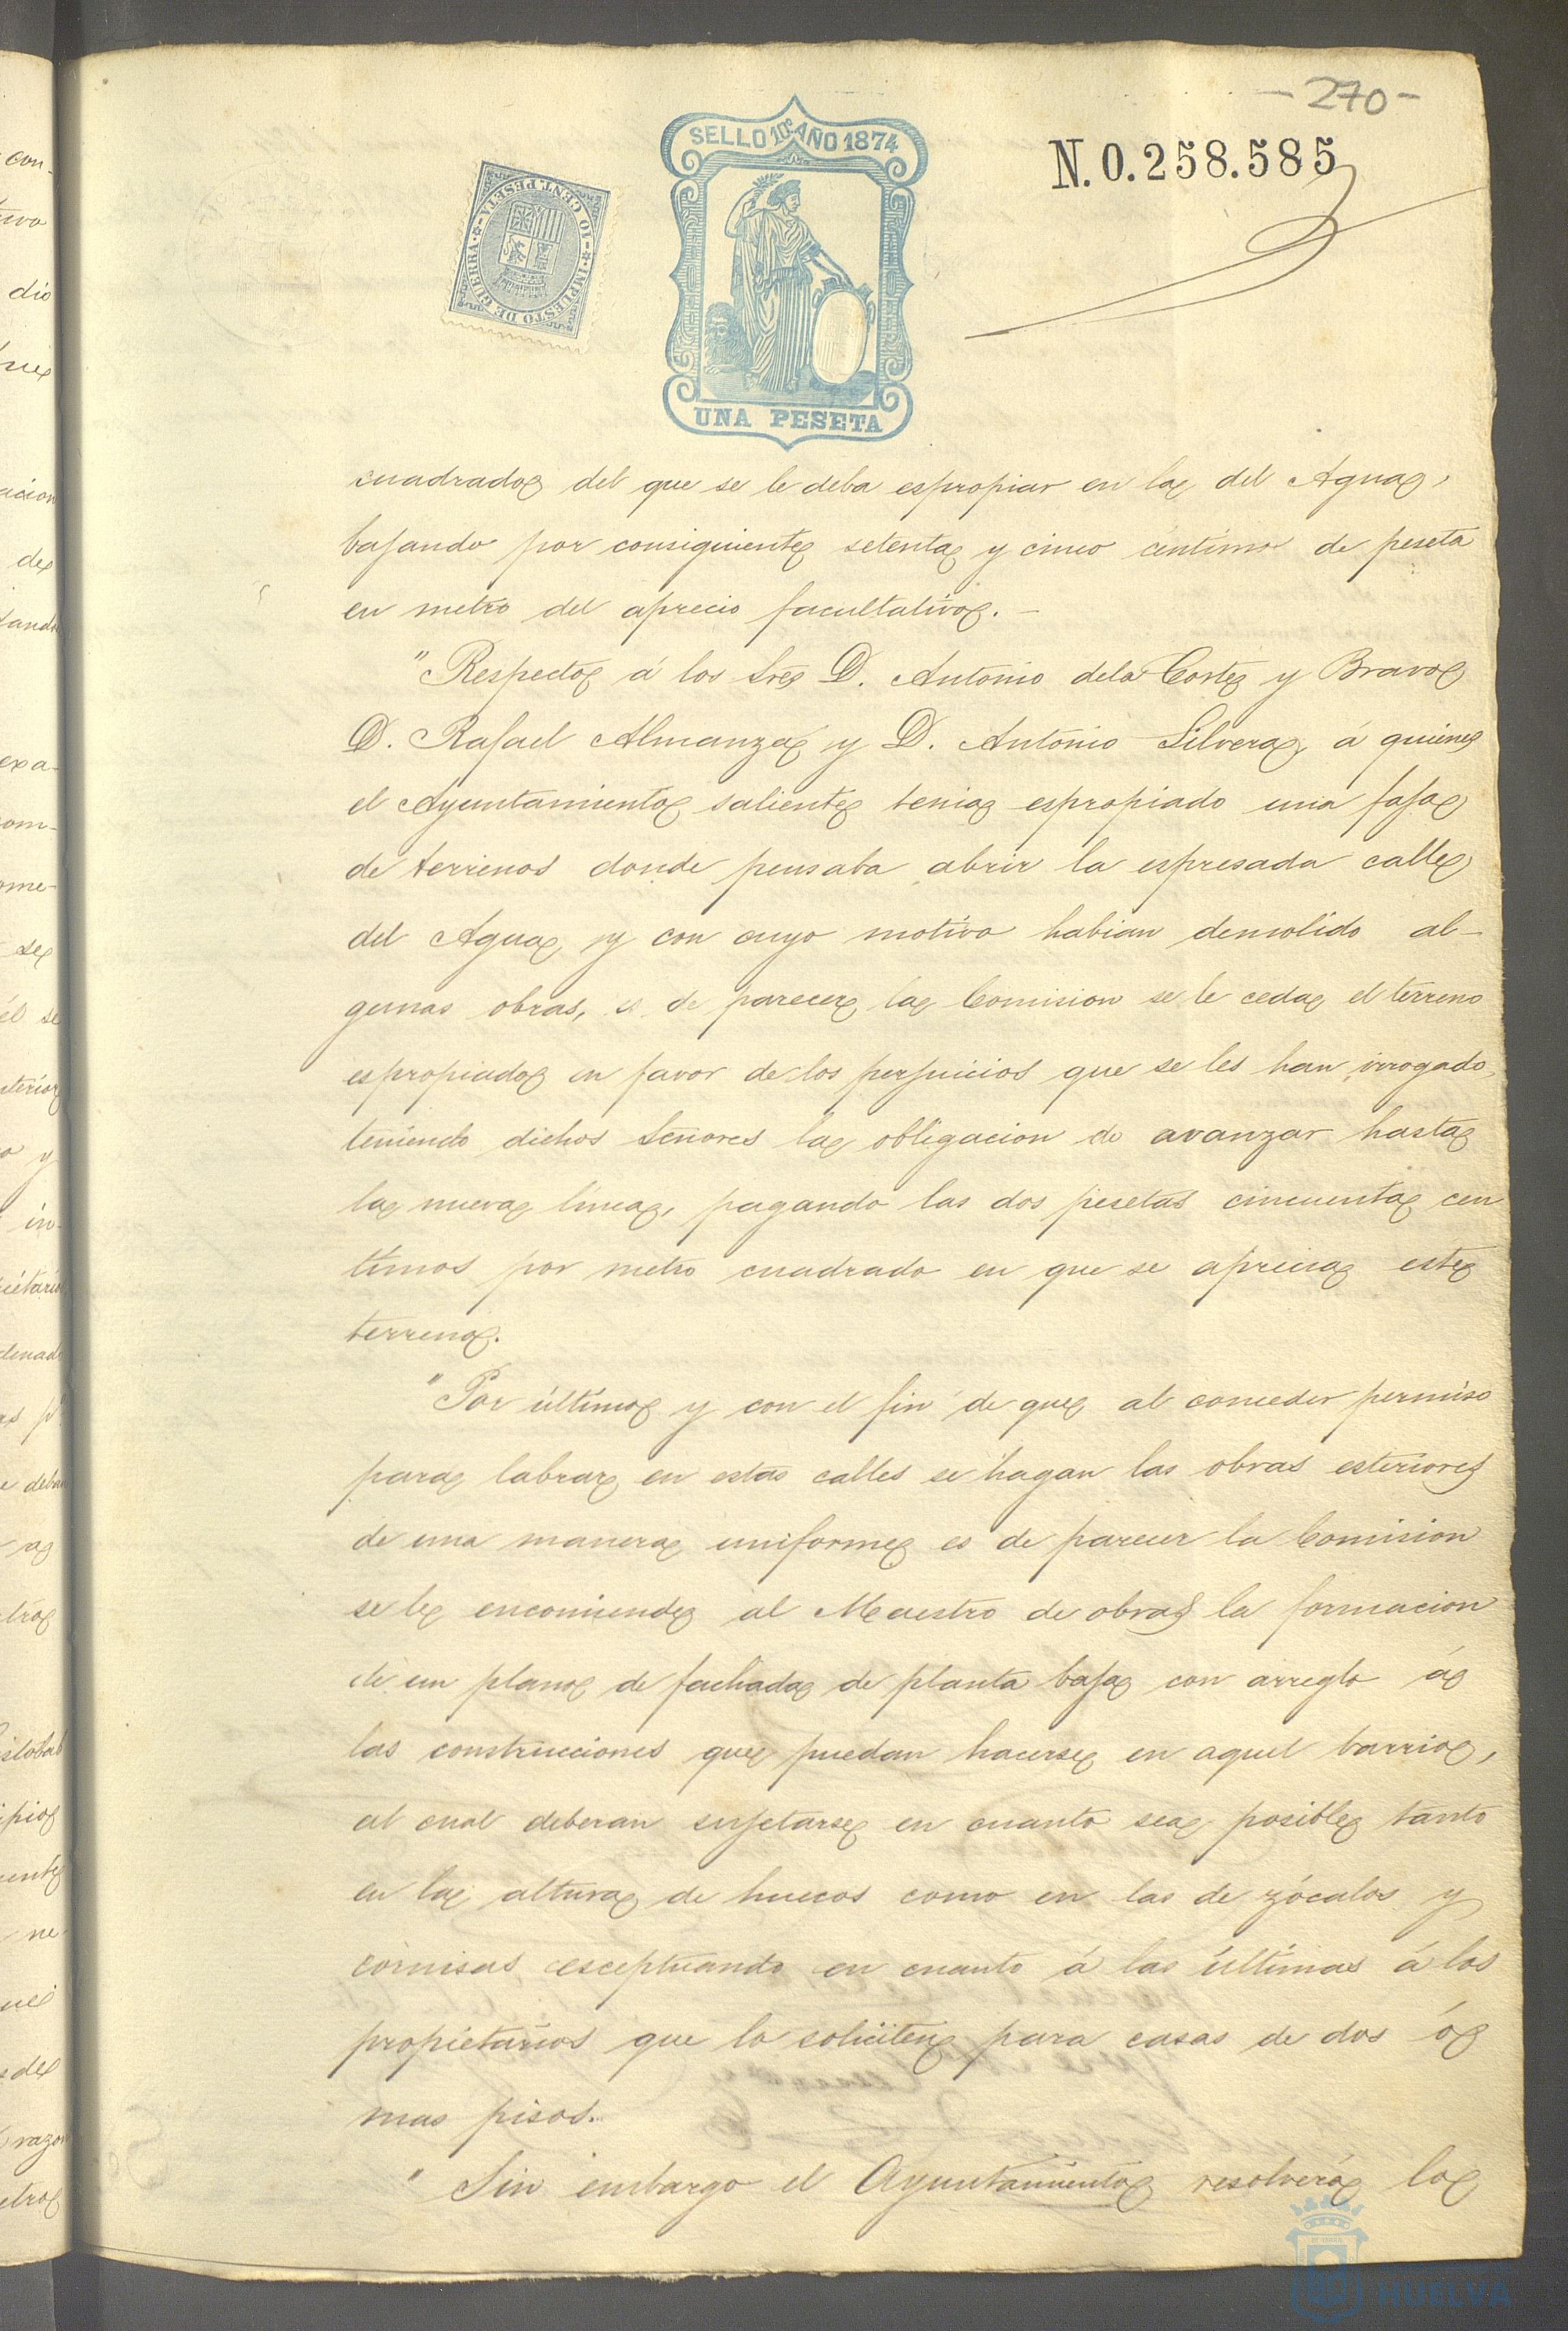 - 270 -
N. 0.258.585
SELLO 10º AÑO 1874
10 CENT. PESETA
IMPUESTO DE GUERRA
UNA PESETA
cuadrados del que se le deba espropiar en la del Agua,
bajando por consiguiente setenta y cinco céntimos de peseta
en metro del aprecio facultativo. -
"Respecto á los Sres D. Antonio dela Corte y Bravo
D. Rafael Almanza y D. Antonio Silvera, á quienes
el Ayuntamiento saliente tenia espropiado una faja
de terrenos donde pensaba abrir la espresada calle
del Agua, y con cuyo motivo habian demolido al-
gunas obras, es de parecer la Comision se le ceda el terreno
espropiado en favor de los perjuicios que se les han irrogado,
teniendo dichos Señores la obligacion de avanzar hasta
la nueva linea, pagando las dos pesetas cincuenta cen
timos por metro cuadrado en que se aprecia este
terreno.
"Por último y con el fin de que al conceder permiso
para labrar en estas calles se hagan las obras esteriores
de una manera uniforme es de parecer la Comision
se le encomiende al Maestro de obras la formacion
de un plano de fachada de planta baja con arreglo á
las construcciones que puedan hacerse en aquel barrio,
al cual deberan sujetarse en cuanto sea posible tanto
en la altura de huecos como en las de zócalos y
cornisas esceptuando en cuanto á las últimas á los
propietarios que lo soliciten para casas de dos ó
mas pisos.
" Sin embargo el Ayuntamiento resolverá lo
HUELVA
con-
dio
acion
de
exa-
om-
ome-
se
él se
o y
in-
e deban
razon